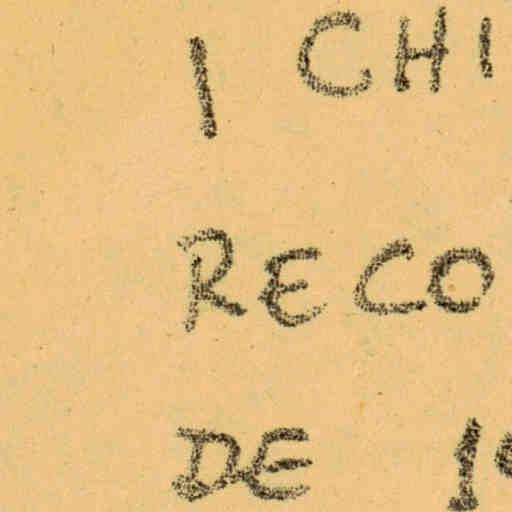 I CHI
RECO
DE 1